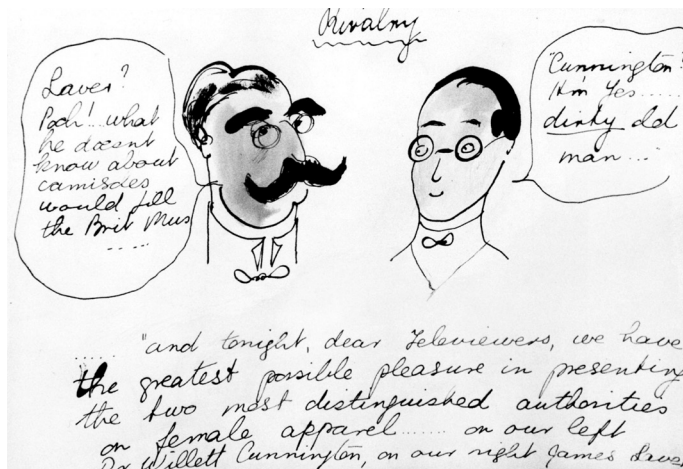 Rivalry
Laver?
Pooh! ... what
he doesnt
know about
camisoles
would fill
the Brit Mus
.....
"Cunnington?
H'm Yes......
dirty old
man..."
..... "and tonight, dear Televiewers, we have
the greatest possible pleasure in presenting
the two most distinguished authorities
on female apparel....... on our left
Dr Willett Cunnington, on our right James Laver